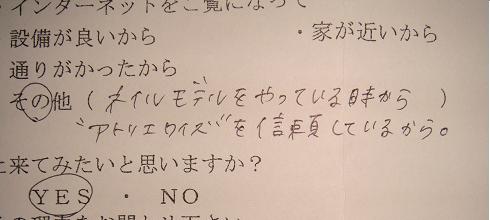 ・インターネットをご覧になって
・設備が良いから ・家が近いから
通りがかったから
その他 ( ネイルモデルをやっている時から )
"アトリエワイズ"を信頼しているから。
に来てみたいと思いますか？
YES ・ NO
の理由をお聞かせ下さい